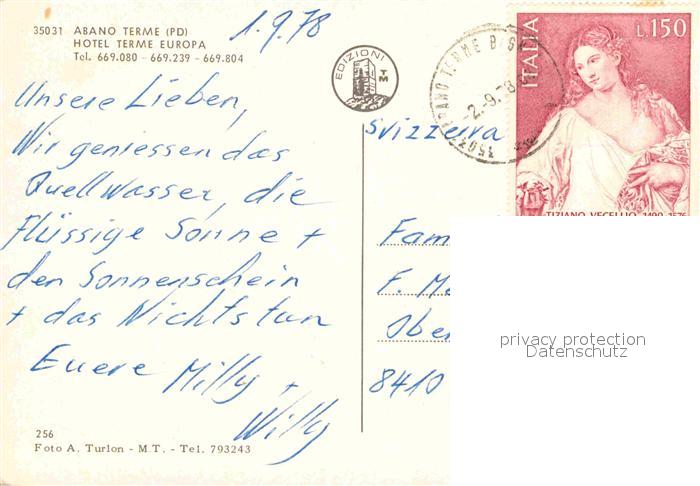 35031 ABANO TERME (PD)
HOTEL TERME EUROPA
Tel. 669.080 - 669.239 - 669.804
1.9.78
EDIZIONI
TM
ITALIA
L.150
TIZIANO VECELLIO 1490-1576
ABANO TERME
-2-9.78
Unsere Lieben,
Wir geniessen das
Quellwasser, die
flüssige Sonne +
den Sonnenschein
+ das Nichtstun
Euere Milly +
Willy
Svizzera
Fam
F. Me
Ober
8410
privacy protection
Datenschutz
256
Foto A. Turlon - M.T. - Tel. 793243